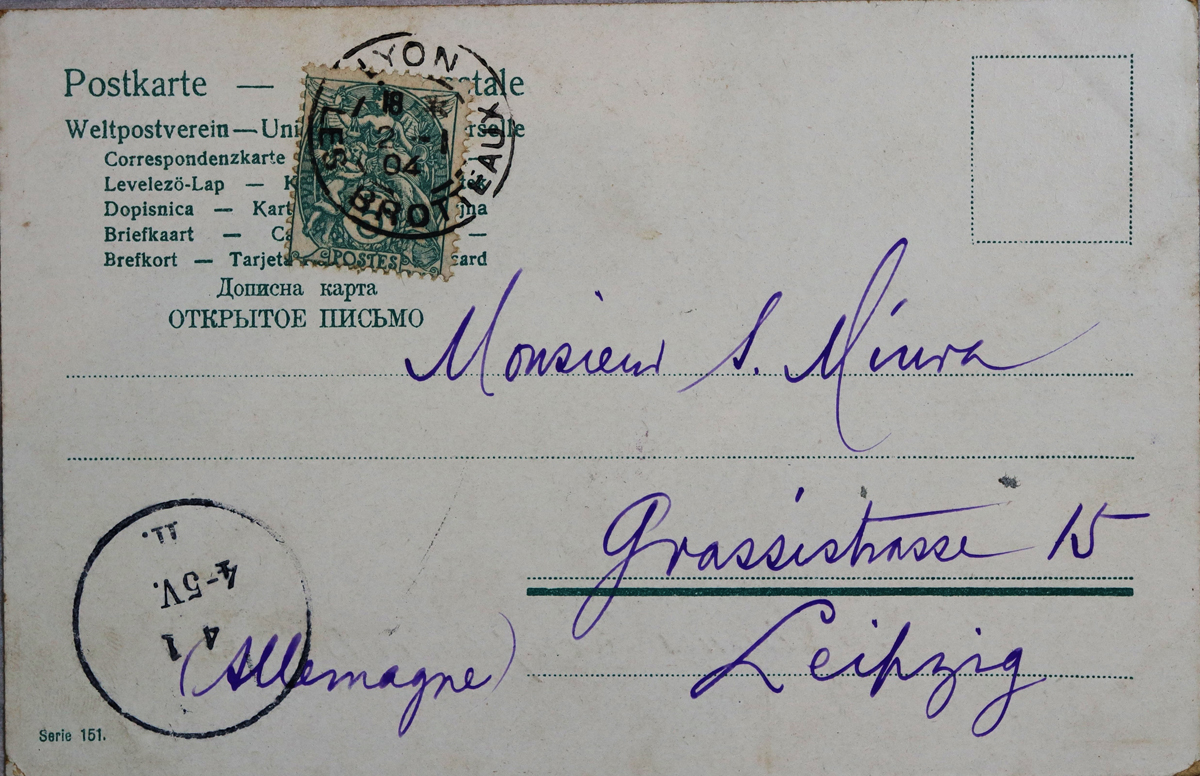 Postkarte — stale
Weltpostverein — Uni rselle
Correspondenzkarte
Levelezö-Lap — K
Dopisnica — Kart jna
Briefkaart — Ca —
Brefkort — Tarjeta card
Дописна карта
ОТКРЫТОЕ ПИСЬМО
LYON
18
2 - 1
04
LES BROTTEAUX
POSTES
Monsieur S. Miura
Grassistrasse 15
Leipzig
(Allemagne)
II.
4-5V.
4 1
Serie 151.